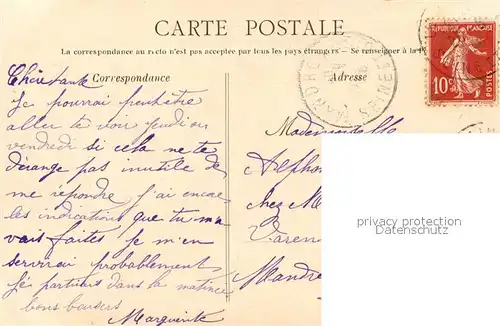 CARTE POSTALE
La correspondance au recto n'est pas acceptée par tous les pays étrangers — Se renseigner à la P
Correspondance
Adresse
REPUBLIQUE FRANÇAISE
10c
POSTES
MANDRES
SEINE
Chère tante
Je pourrai peut être
aller te voir jeudi ou
vendredi si cela ne te
dérange pas inutile de
me répondre j'ai encore
les indications que tu m'a
vais faites Je m'en
servirai probablement
je partirais dans la matinée
bons baisers
Marguerite
Mademoiselle
Alphon
chez M
Varen
Mandre
privacy protection
Datenschutz